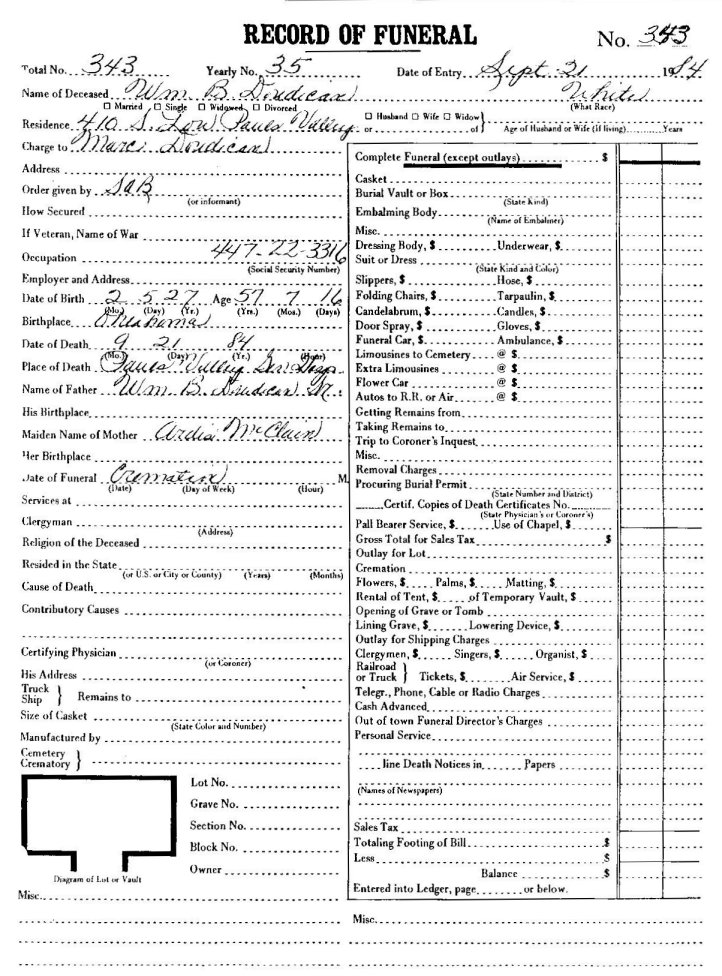 RECORD OF FUNERAL
No. 343
Total No. 343 Yearly No. 35 Date of Entry Sept. 21 1984
Name of Deceased Wm B. Doudican White
□ Married □ Single □ Widowed □ Divorced (What Race)
Residence 410 S. Pauls Valley □ Husband □ Wife □ Widow or of Age of Husband or Wife (if living) Years
Charge to Marci Doudican
Address
Order given by
(or informant)
How Secured
If Veteran, Name of War
Occupation 447-22-3316
(Social Security Number)
Employer and Address
Date of Birth 2 5 27 Age 57 7 16
(Mo.) (Day) (Yr.) (Yrs.) (Mos.) (Days)
Birthplace Oklahoma
Date of Death 9 21 84
(Mo.) (Day) (Yr.) (Hour)
Place of Death Pauls Valley Gen Hosp.
Name of Father Wm B. Doudican Sr.
His Birthplace
Maiden Name of Mother Ardis McClain
Her Birthplace
Date of Funeral Cremation M.
(Date) (Day of Week) (Hour)
Services at
Clergyman
(Address)
Religion of the Deceased
Resided in the State
(or U.S. or City or County) (Years) (Months)
Cause of Death
Contributory Causes
Certifying Physician
(or Coroner)
His Address
Truck
Ship } Remains to
Size of Casket
(State Color and Number)
Manufactured by
Cemetery
Crematory }
Lot No.
Grave No.
Section No.
Block No.
Owner
Diagram of Lot or Vault
Misc.
Complete Funeral (except outlays) $
Casket
Burial Vault or Box
(State Kind)
Embalming Body
(Name of Embalmer)
Misc.
Dressing Body, $ Underwear, $
Suit or Dress
(State Kind and Color)
Slippers, $ Hose, $
Folding Chairs, $ Tarpaulin, $
Candelabrum, $ Candles, $
Door Spray, $ Gloves, $
Funeral Car, $ Ambulance, $
Limousines to Cemetery @ $
Extra Limousines @ $
Flower Car @ $
Autos to R.R. or Air @ $
Getting Remains from
Taking Remains to
Trip to Coroner's Inquest
Misc.
Removal Charges
Procuring Burial Permit
(State Number and District)
Certif. Copies of Death Certificates No.
(State Physician's or Coroner's)
Pall Bearer Service, $ Use of Chapel, $
Gross Total for Sales Tax $
Outlay for Lot
Cremation
Flowers, $ Palms, $ Matting, $
Rental of Tent, $ of Temporary Vault, $
Opening of Grave or Tomb
Lining Grave, $ Lowering Device, $
Outlay for Shipping Charges
Clergymen, $ Singers, $ Organist, $
Railroad
or Truck } Tickets, $ Air Service, $
Telegr., Phone, Cable or Radio Charges
Cash Advanced
Out of town Funeral Director's Charges
Personal Service
line Death Notices in Papers
(Names of Newspapers)
Sales Tax
Totaling Footing of Bill $
Less $
Balance $
Entered into Ledger, page or below.
Misc.